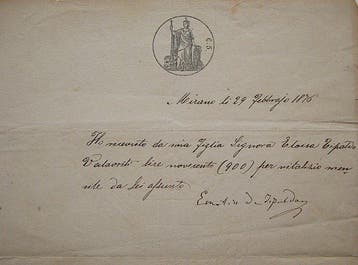 C. 5.
Mirano li 29 Febbrajo 1876
Ho ricevuto da mia figlia Signora Eloisa Tipaldo
Valaoriti lire novecento (900) per vitalizio men
sile da lei assunto
Emilio de Tipaldo